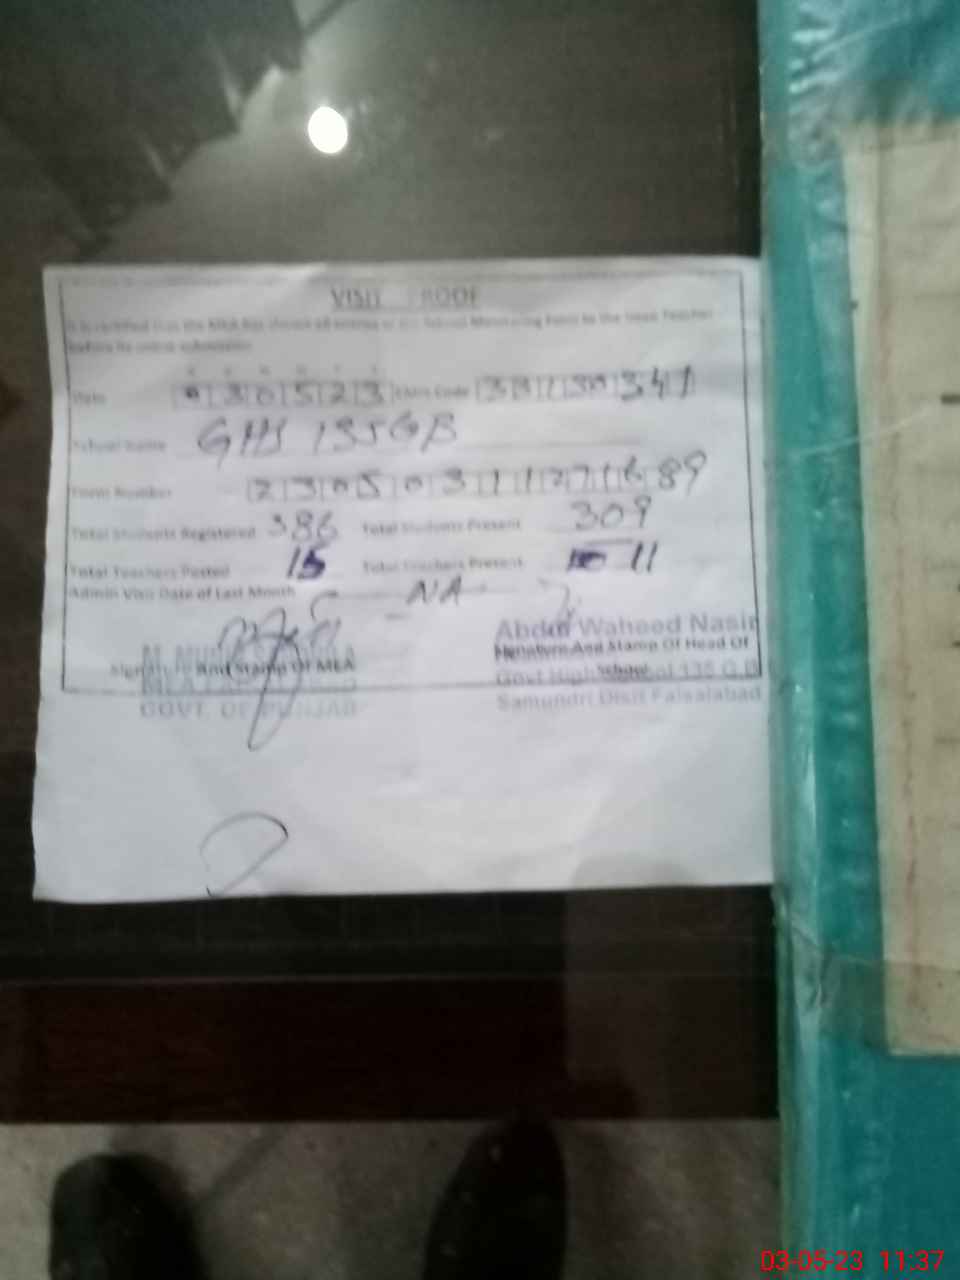 VISIT PROOF
It is certified that the MEA has shown all entries of the School Monitoring Form to the Head Teacher
before its online submission
Date 030523 EMIS Code
School Name GHS 135GB
Form Number 23050311271689
Total Students Registered 386 Total Students Present 309
Total Teachers Posted 15 Total Teachers Present 11
Admin Visit Date of Last Month NA
Signature And Stamp Of MEA
GOVT. OF PUNJAB
Abdul Waheed Nasir
Signature And Stamp Of Head Of
School
Govt High School 135 G.B
Samundri Distt Faisalabad
03-05-23 11:37